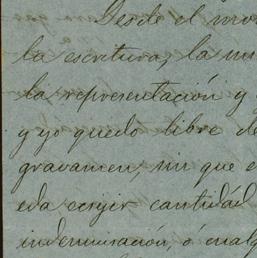 Desde el mo
la escritura, la mi
la representación y
y yo quedo libre de
gravamen, sin que
eda ecsijir cantidad
indemnisación, ó cualq